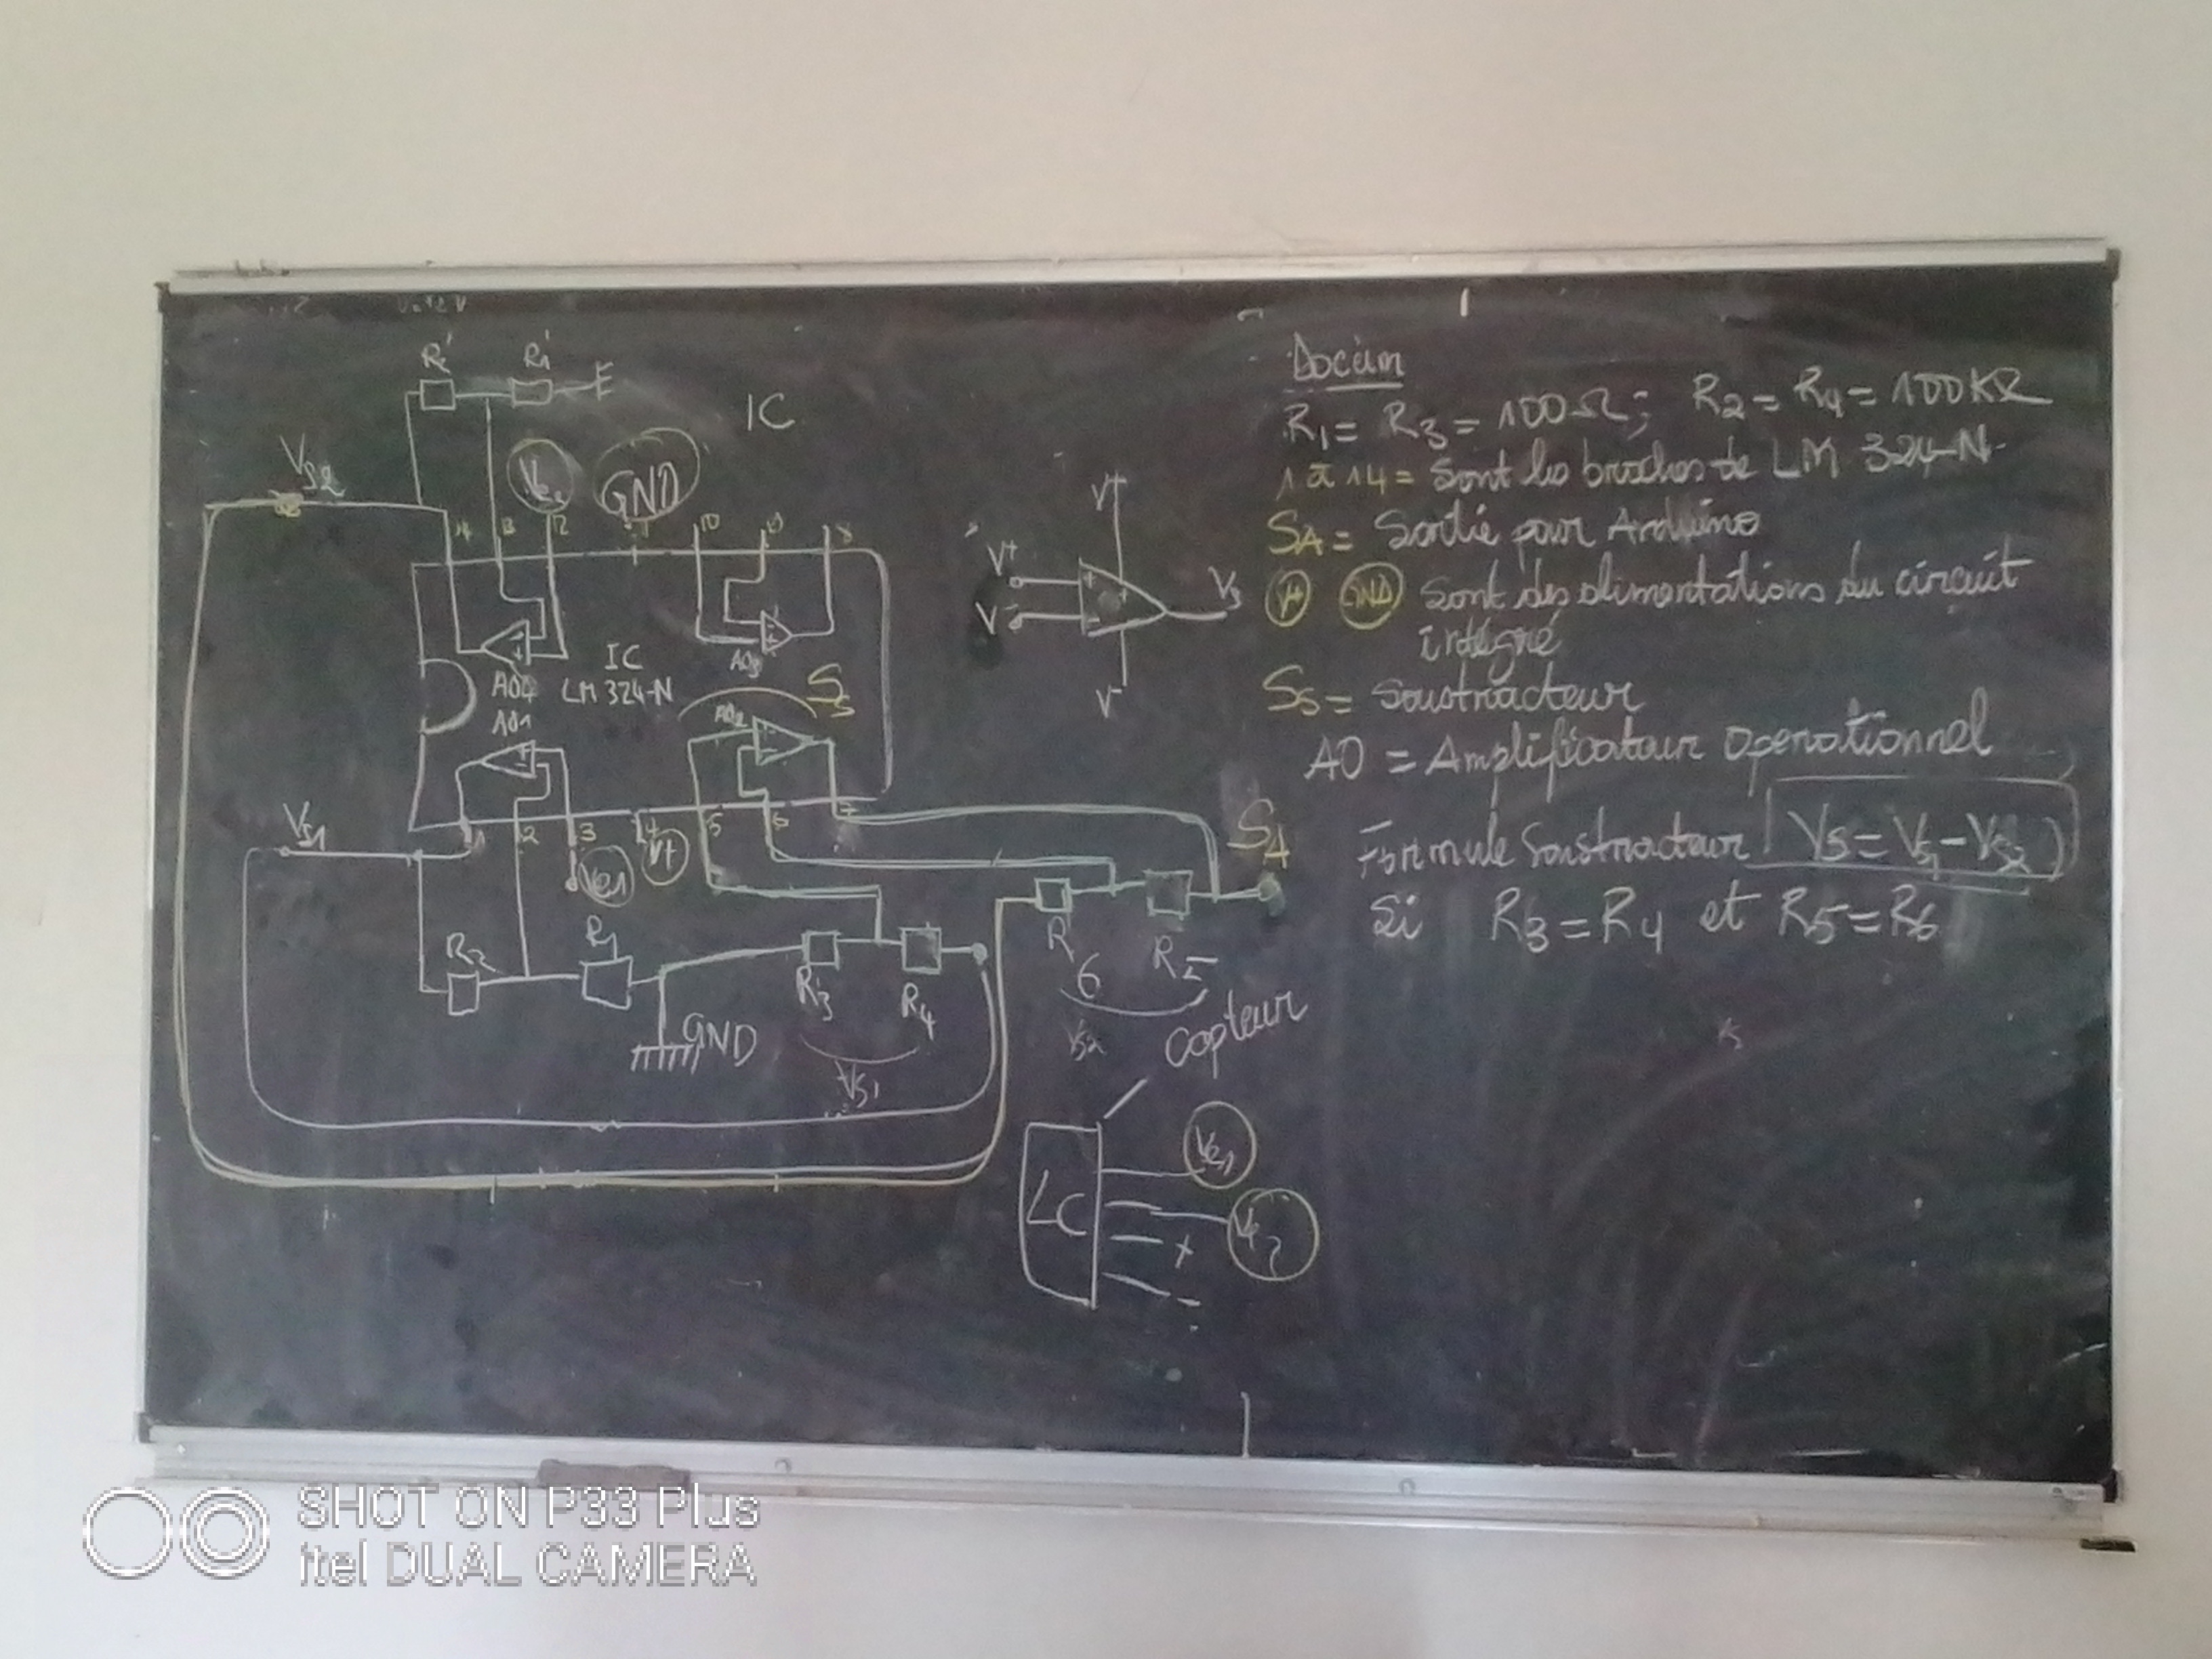 R'
R'1
IC
VS2
Ve2
GND
14 13 12 11 10 9 8
AO4
AO3
IC
LM 324-N
AO1
AO2
Ss
VS1
1 2 3 4 5 6 7
Ve1
V+
R2
R1
GND
R'3
R4
VS1
R
6
R5
VS2
SA
V+
V+
V-
VS
V-
Capteur
LC
Ve1
Ve2
+
-
Docum
R1 = R3 = 100Ω; R2 = R4 = 100KΩ
1 à 14 = Sont les broches de LM 324-N
SA = Sortie pour Arduino
V+ GND Sont des alimentations du circuit
intégré
Ss = Soustracteur
AO = Amplificateur Operationnel
Formule Soustracteur VS = VS1 - VS2
Si R3 = R4 et R5 = R6
SHOT ON P33 Plus
itel DUAL CAMERA